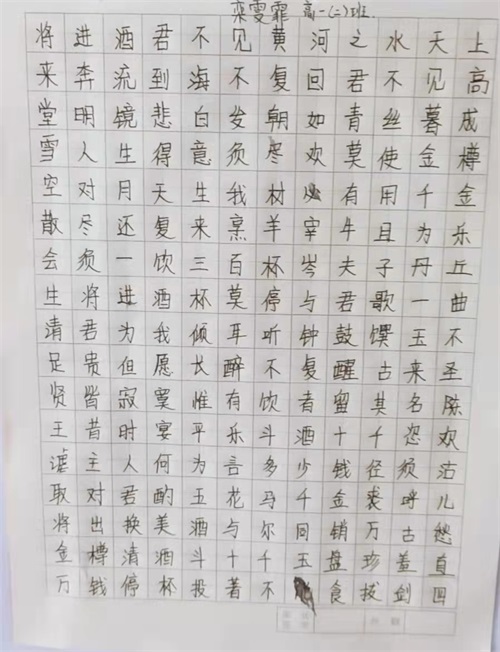 栾雯霏 高一(二)班.
将进酒君不见黄河之水天上
来奔流到海不复回君不见高
堂明镜悲白发朝如青丝暮成
雪人生得意须尽欢莫使金樽
空对月天生我材必有用千金
散尽还复来烹羊宰牛且为乐
会须一饮三百杯岑夫子丹丘
生将进酒杯莫停与君歌一曲
请君为我倾耳听钟鼓馔玉不
足贵但愿长醉不复醒古来圣
贤皆寂寞惟有饮者留其名陈
王昔时宴平乐斗酒十千恣欢
谑主人何为言多少钱径须沽
取对君酌五花马千金裘呼儿
将出换美酒与尔同销万古愁
金樽清酒斗十千玉盘珍羞直
万钱停杯投著不食拔剑四